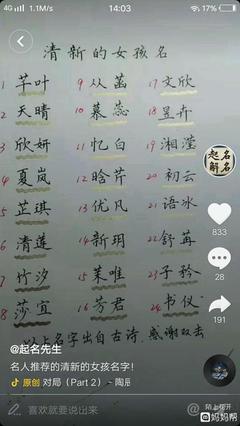 4G 1.1M/s 14:03 17%
清新的女孩名
1 芊叶 9 从菡 17 文欣
2 天晴 10 慕蕊 18 昱卉
3 欣妍 11 忆白 19 湘滢
4 夏岚 12 晗芹 20 初云
5 芷琪 13 优凡 21 语冰
6 清莲 14 新玥 22 舒苒
7 竹汐 15 茉唯 23 子衿
8 莎宜 16 芳君 24 书仪
以上名字出自古诗 感谢双击
起名
解名
833
28
@起名先生
名人推荐的清新的女孩名字!
原创 对局(Part 2) - 陶
喜欢就要说出来
陌上花开
妈妈帮